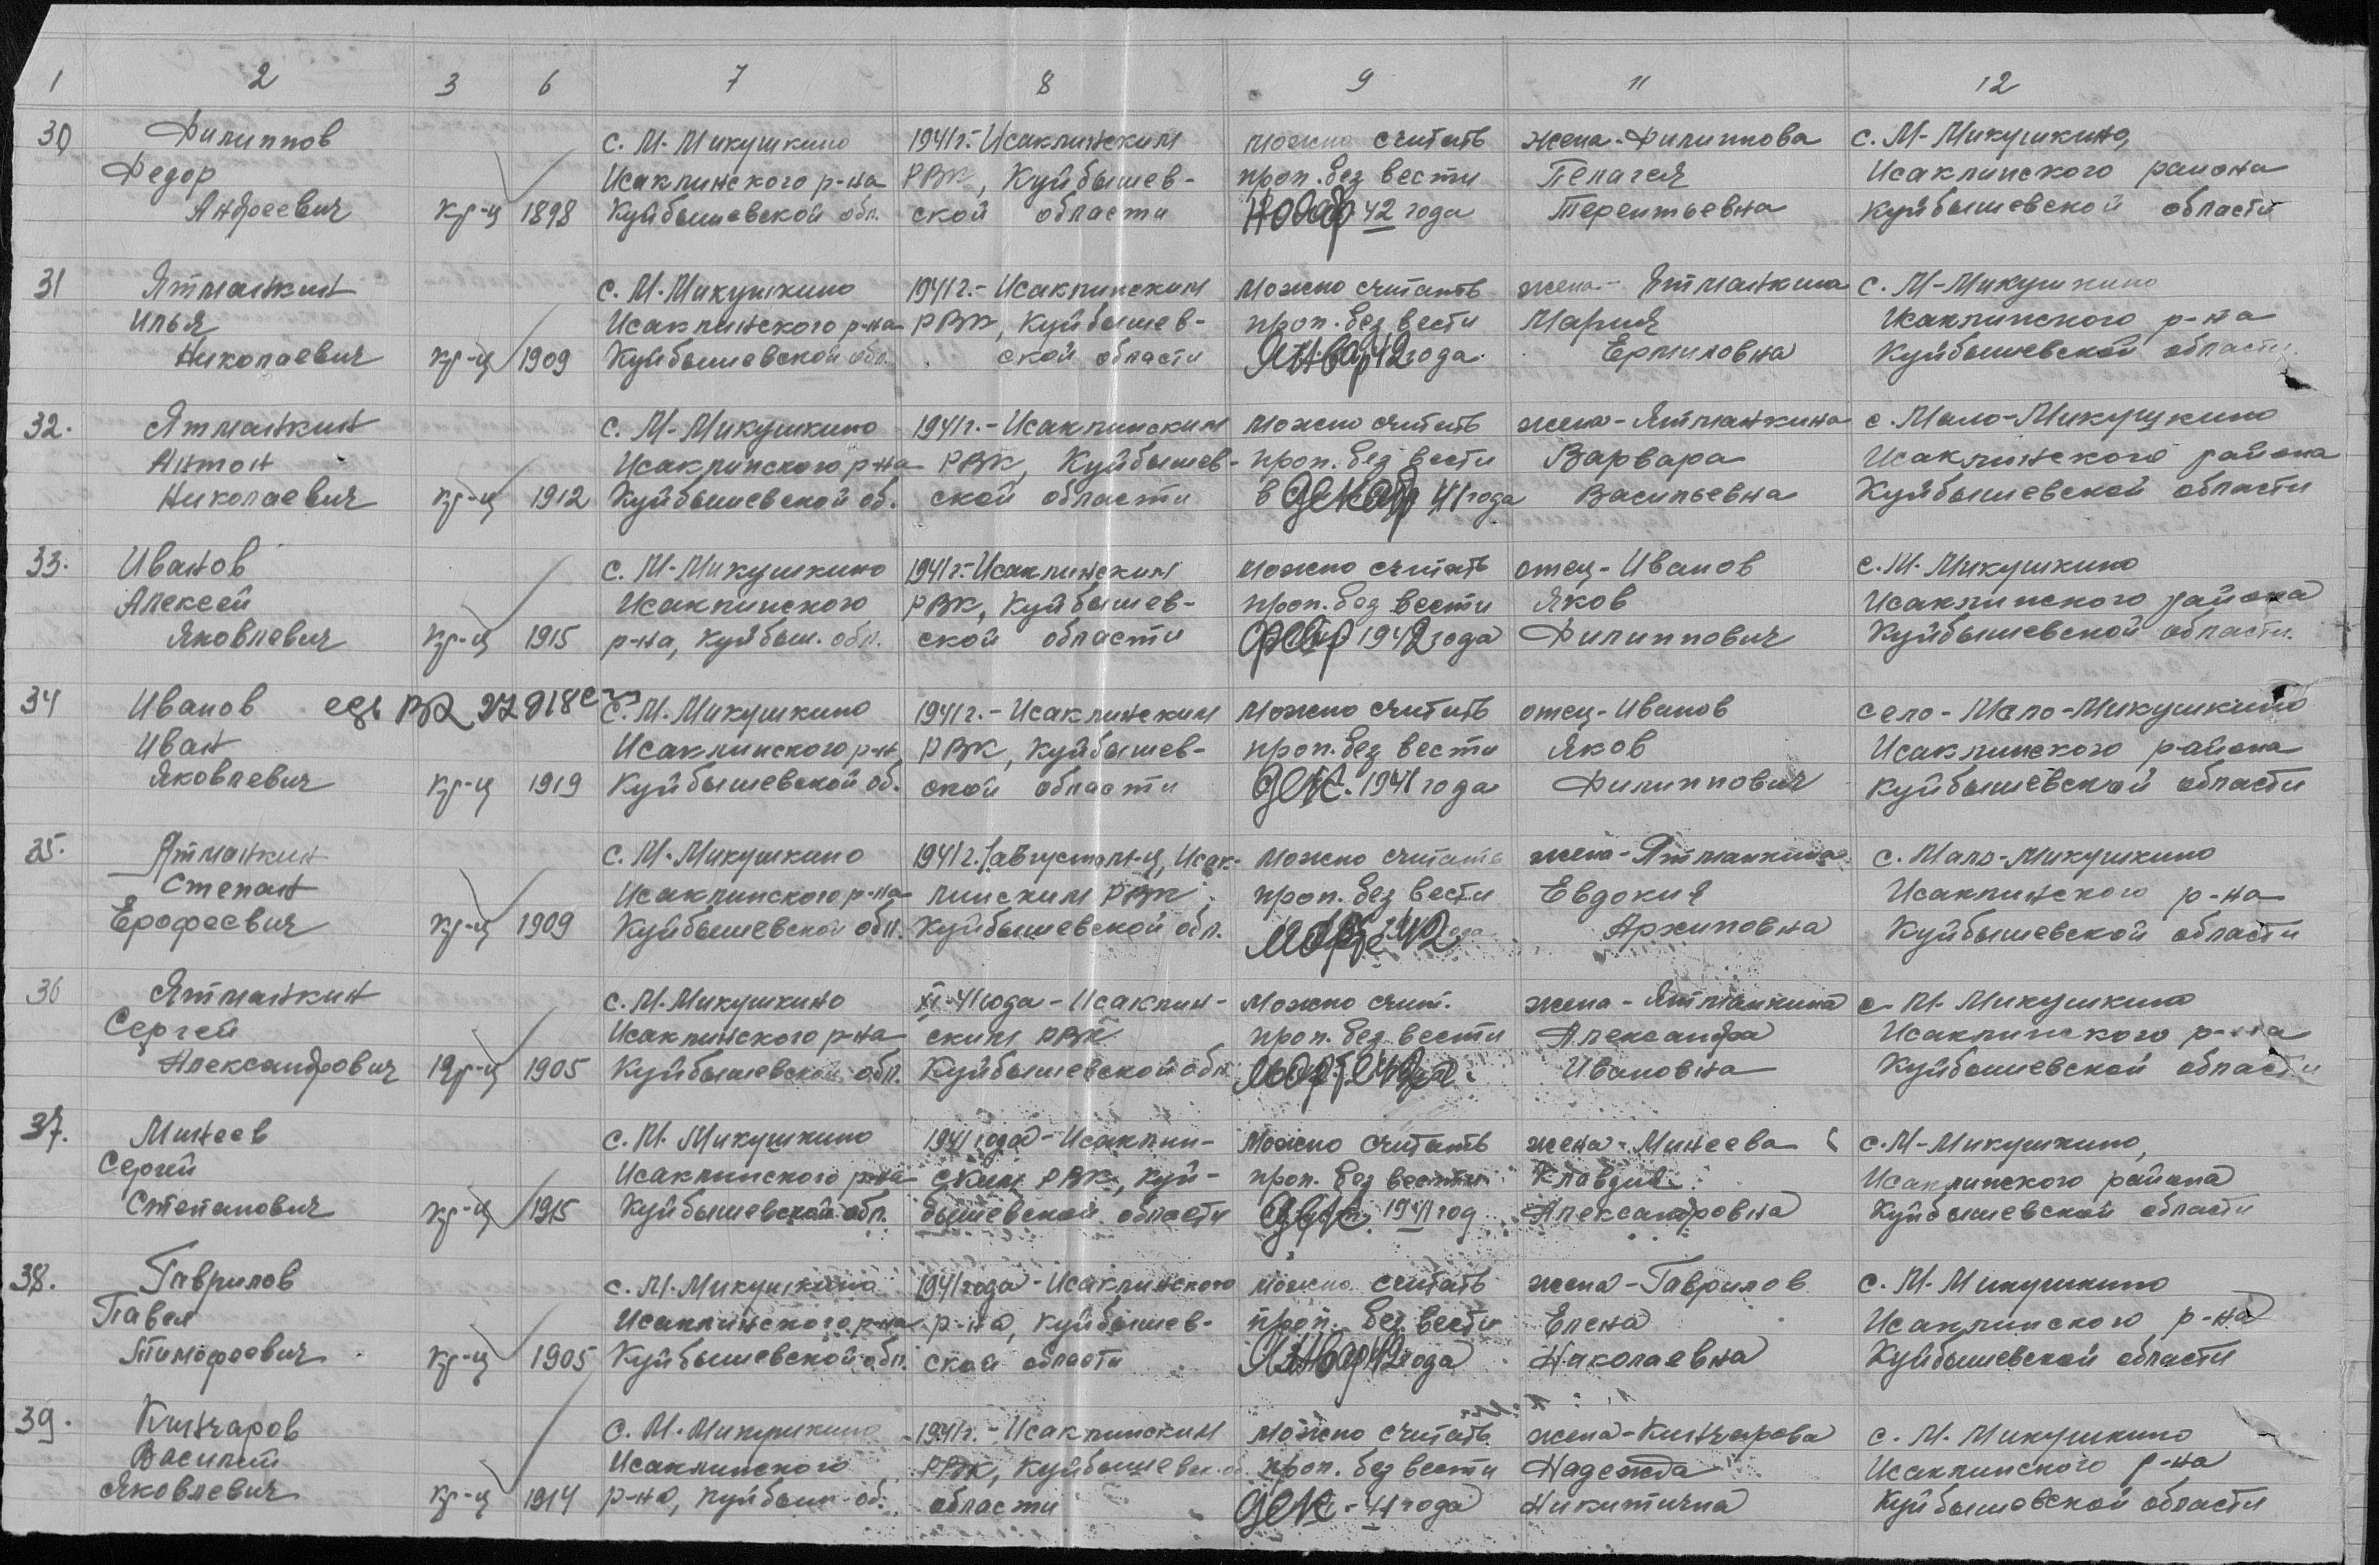 1 2 3 6 7 8 9 11 12
30 Филиппов с. М-Микушкино 1941г.-Исаклинским можно считать жена-Филиппова с. М-Микушкино,
Федор Исаклинского р-на РВК, Куйбышев- проп. без вести Пелагея Исаклинского района
Андреевич кр-ц 1898 Куйбышевской обл. ской области 42 года Терентьевна Куйбышевской области
31 Ятманкин с. М-Микушкино 1941г.-Исаклинским можно считать жена-Ятманкина с. М-Микушкино
Илья Исаклинского р-на РВК, Куйбышев- проп. без вести Мария Исаклинского р-на
Николаевич кр-ц 1909 Куйбышевской обл. ской области январ 42 года Ермиловна Куйбышевской области
32. Ятманкин с. М-Микушкино 1941г.-Исаклинским можно считать жена-Ятманкина с. Мало-Микушкино
Антон Исаклинского р-на РВК, Куйбышев- проп. без вести Варвара Исаклинского района
Николаевич кр-ц 1912 Куйбышевской об. ской области в декабр 41 года Васильевна Куйбышевской области
33. Иванов с. М-Микушкино 1941г.-Исаклинским можно считать отец-Иванов с. М-Микушкино
Алексей Исаклинского РВК, Куйбышев- проп. без вести Яков Исаклинского района
Яковлевич кр-ц 1915 р-на, Куйбыш. обл. ской области февр 1942 года Филиппович Куйбышевской области.
34 Иванов с. М. Микушкино 1941г.-Исаклинским можно считать отец-Иванов село-Мало-Микушкино
Иван Исаклинского р-н РВК, Куйбышев- проп. без вести Яков Исаклинского района
Яковлевич кр-ц 1919 Куйбышевской об. ской области дек. 1941 года Филиппович Куйбышевской области
35. Ятманкин с. М-Микушкино 1941г./август м-ц, Исак- можно считать жена-Ятманкина с. Мало-Микушкино
Степан Исаклинского р-на линским РВК, проп. без вести Евдокия Исаклинского р-на
Ерофеевич кр-ц 1909 Куйбышевской обл. Куйбышевской обл. марте 42 года Архиповна Куйбышевской области
36 Ятманкин с. М-Микушкино XI-41 года-Исаклин- можно счит. жена-Ятманкина с. М-Микушкино
Сергей Исаклинского р-на ским РВК проп. без вести Александра Исаклинского р-на
Александрович кр-ц 1905 Куйбышевской обл. Куйбышевской обл марте 42 г. Ивановна Куйбышевской области
37. Минеев с. М. Микушкино 1941 года-Исаклин- можно считать жена-Минеева с. М-Микушкино,
Сергей Исаклинского р-на ским РВК, Куй- проп. без вести Клавдия Исаклинского района
Степанович кр-ц 1915 Куйбышевской обл. бышевской области дек. 1941 год Александровна Куйбышевской области
38. Гаврилов с. М-Микушкино 1941 года-Исаклинского можно считать жена-Гаврилов с. М-Микушкино
Павел Исаклинского р-на р-на, Куйбышев- проп. без вести Елена Исаклинского р-на
Тимофеевич кр-ц 1905 Куйбышевской обл. ской области январ 42 года Николаевна Куйбышевской области
39. Кинчаров с. М-Микушкино 1941г.-Исаклинским можно считать жена-Кинчарова с. М. Микушкино
Василий Исаклинского РВК, проп. без вести Надежда Исаклинского р-на
Яковлевич кр-ц 1914 р-на, Куйбыш-об. области дек-41 года Никитична Куйбышевской области